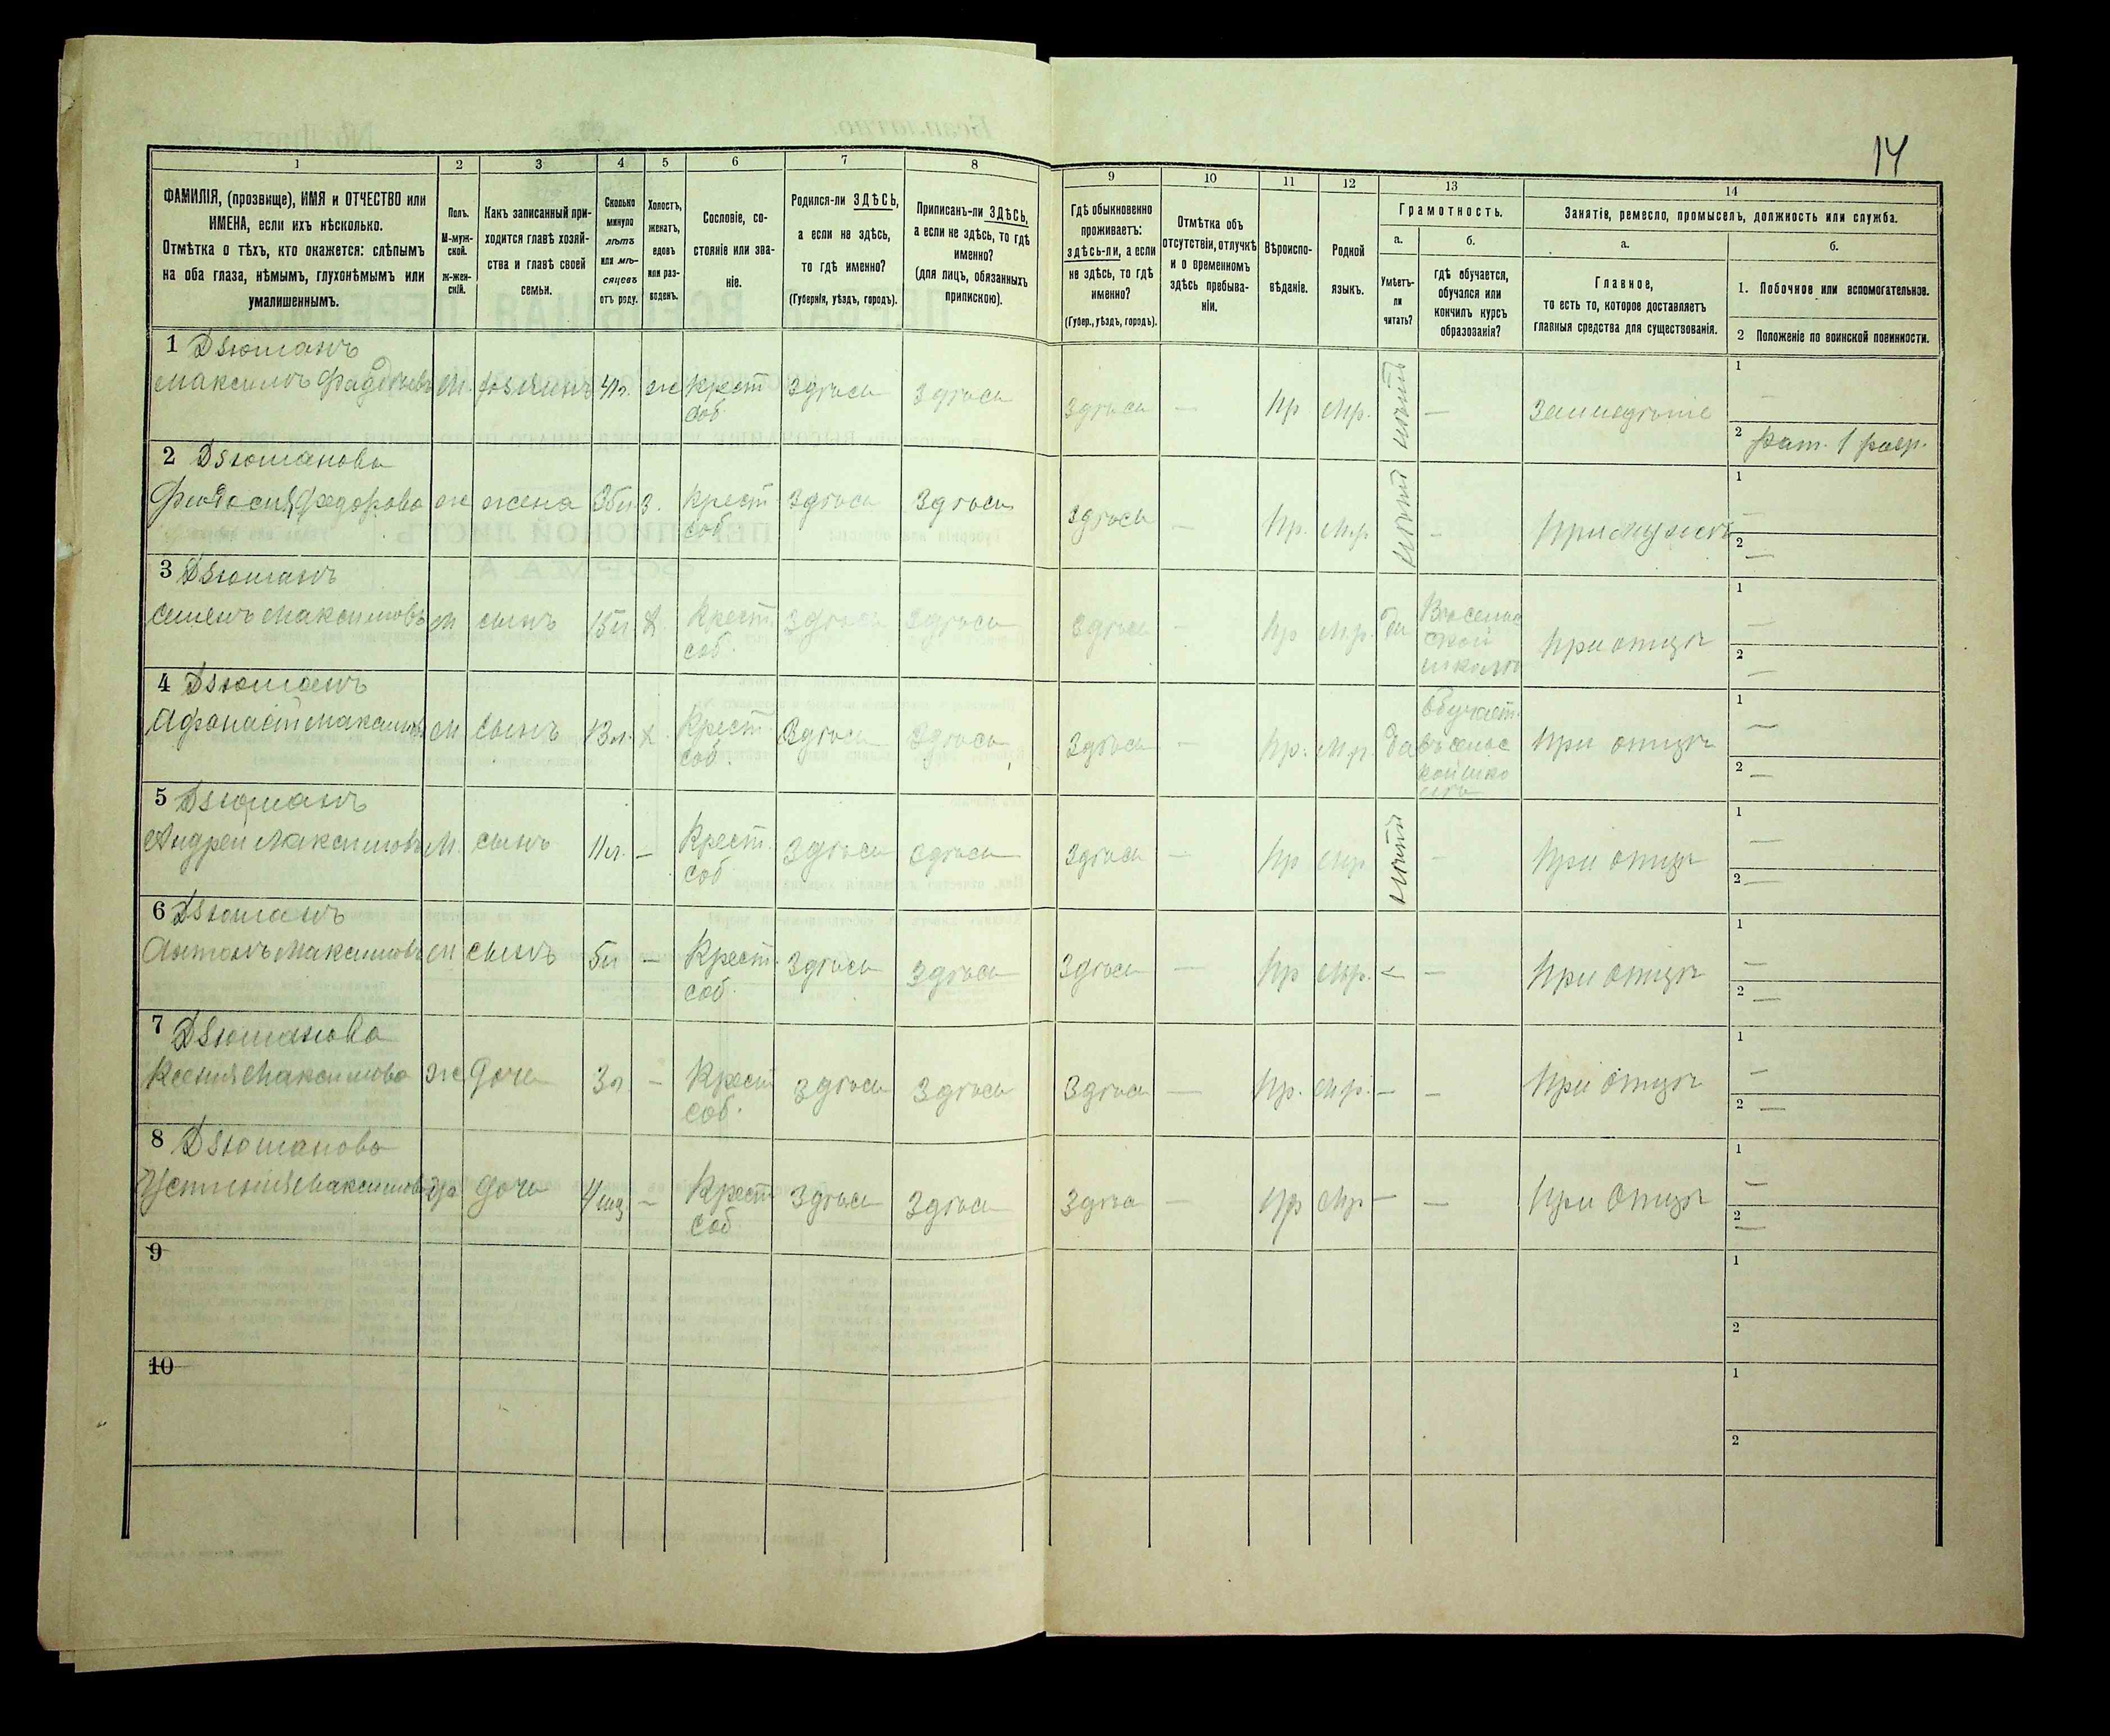 14
1 2 3 4 5 6 7 8 9 10 11 12 13 14
ФАМИЛІЯ, (прозвище), ИМЯ и ОТЧЕСТВО или
ИМЕНА, если ихъ нѣсколько.
Отмѣтка о тѣхъ, кто окажется: слѣпымъ
на оба глаза, нѣмымъ, глухонѣмымъ или
умалишеннымъ.
Полъ.
М-муж-
ской.
ж-жен-
скій.
Какъ записанный при-
ходится главѣ хозяй-
ства и главѣ своей
семьи.
Сколько
минуло
лѣтъ
или мѣ-
сяцевъ
отъ роду.
Холостъ,
женатъ,
вдовъ
или раз-
веденъ.
Сословіе, со-
стояніе или зва-
ніе.
Родился-ли ЗДѢСЬ,
а если не здѣсь,
то гдѣ именно?
(Губернія, уѣздъ, городъ).
Приписанъ-ли ЗДѢСЬ,
а если не здѣсь, то гдѣ
именно?
(для лицъ, обязанныхъ
припискою).
Гдѣ обыкновенно
проживаетъ:
здѣсь-ли, а если
не здѣсь, то гдѣ
именно?
(Губер., уѣздъ, городъ).
Отмѣтка объ
отсутствіи, отлучкѣ
и о временномъ
здѣсь пребыва-
ніи.
Вѣроиспо-
вѣданіе.
Родной
языкъ.
Грамотность.
а.
Умѣетъ-
ли
читать?
б.
гдѣ обучается,
обучался или
кончилъ курсъ
образованія?
Занятіе, ремесло, промыселъ, должность или служба.
а.
Главное,
то есть то, которое доставляетъ
главныя средства для существованія.
б.
1. Побочное или вспомогательное.
2 Положеніе по воинской повинности.
1 Дзюманъ
Максимъ Фадѣевъ М. хозяинъ 41л. ж Крест соб. Здѣсь Здѣсь Здѣсь — пр мр. нѣтъ — Земледѣліе 1 — 2 рат. 1 разр.
2 Дзюманова
Феодосія Федорова ж жена 36л з. Крест соб Здѣсь Здѣсь здѣсь — пр. м.р нѣтъ — при мужѣ 1 — 2 —
3 Дзюманъ
Семенъ Максимовъ М сынъ 15л х. Крест. соб. Здѣсь Здѣсь Здѣсь — пр м.р. да Въ сельс
ской
школѣ при отцѣ 1 — 2 —
4 Дзюманъ
Афонасій Максимовъ М сынъ 13л. х Крест. соб. Здѣсь Здѣсь Здѣсь — пр. м.р. да обучает.
въ сельс
кой шко
лѣ при отцѣ 1 — 2 —
5 Дзюманъ
Андрей Максимовъ М. сынъ 11л. — Крест. соб Здѣсь Здѣсь Здѣсь — пр мр нѣтъ — при отцѣ 1 — 2 —
6 Дзюманъ
Антонъ Максимовъ М сынъ 5л — Крест. соб. Здѣсь Здѣсь Здѣсь — пр мр. — — при отцѣ 1 — 2 —
7 Дзюманова
Ксенія Максимова ж дочь 3л. — Крест соб. Здѣсь Здѣсь Здѣсь — пр. м.р. — — при отцѣ 1 — 2 —
8 Дзюманова
Устинія Максимова ж дочь 4 мц. — Крест соб Здѣсь Здѣсь Здѣсь — пр мр — — при отцѣ 1 — 2 —
9 1 2
10 1 2